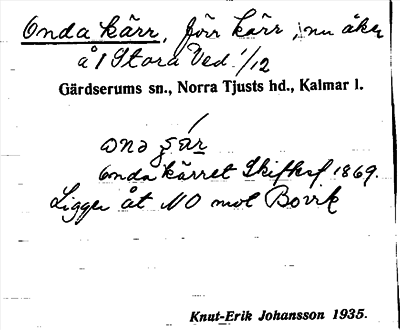 Onda kärr, förr kärr, nu åker
å 1 Stora Ved 1/12
Gärdserums sn., Norra Tjusts hd., Kalmar l.
Onda kärret Skifksf 1869.
Ligger åt NO mot Bovik
Knut-Erik Johansson 1935.